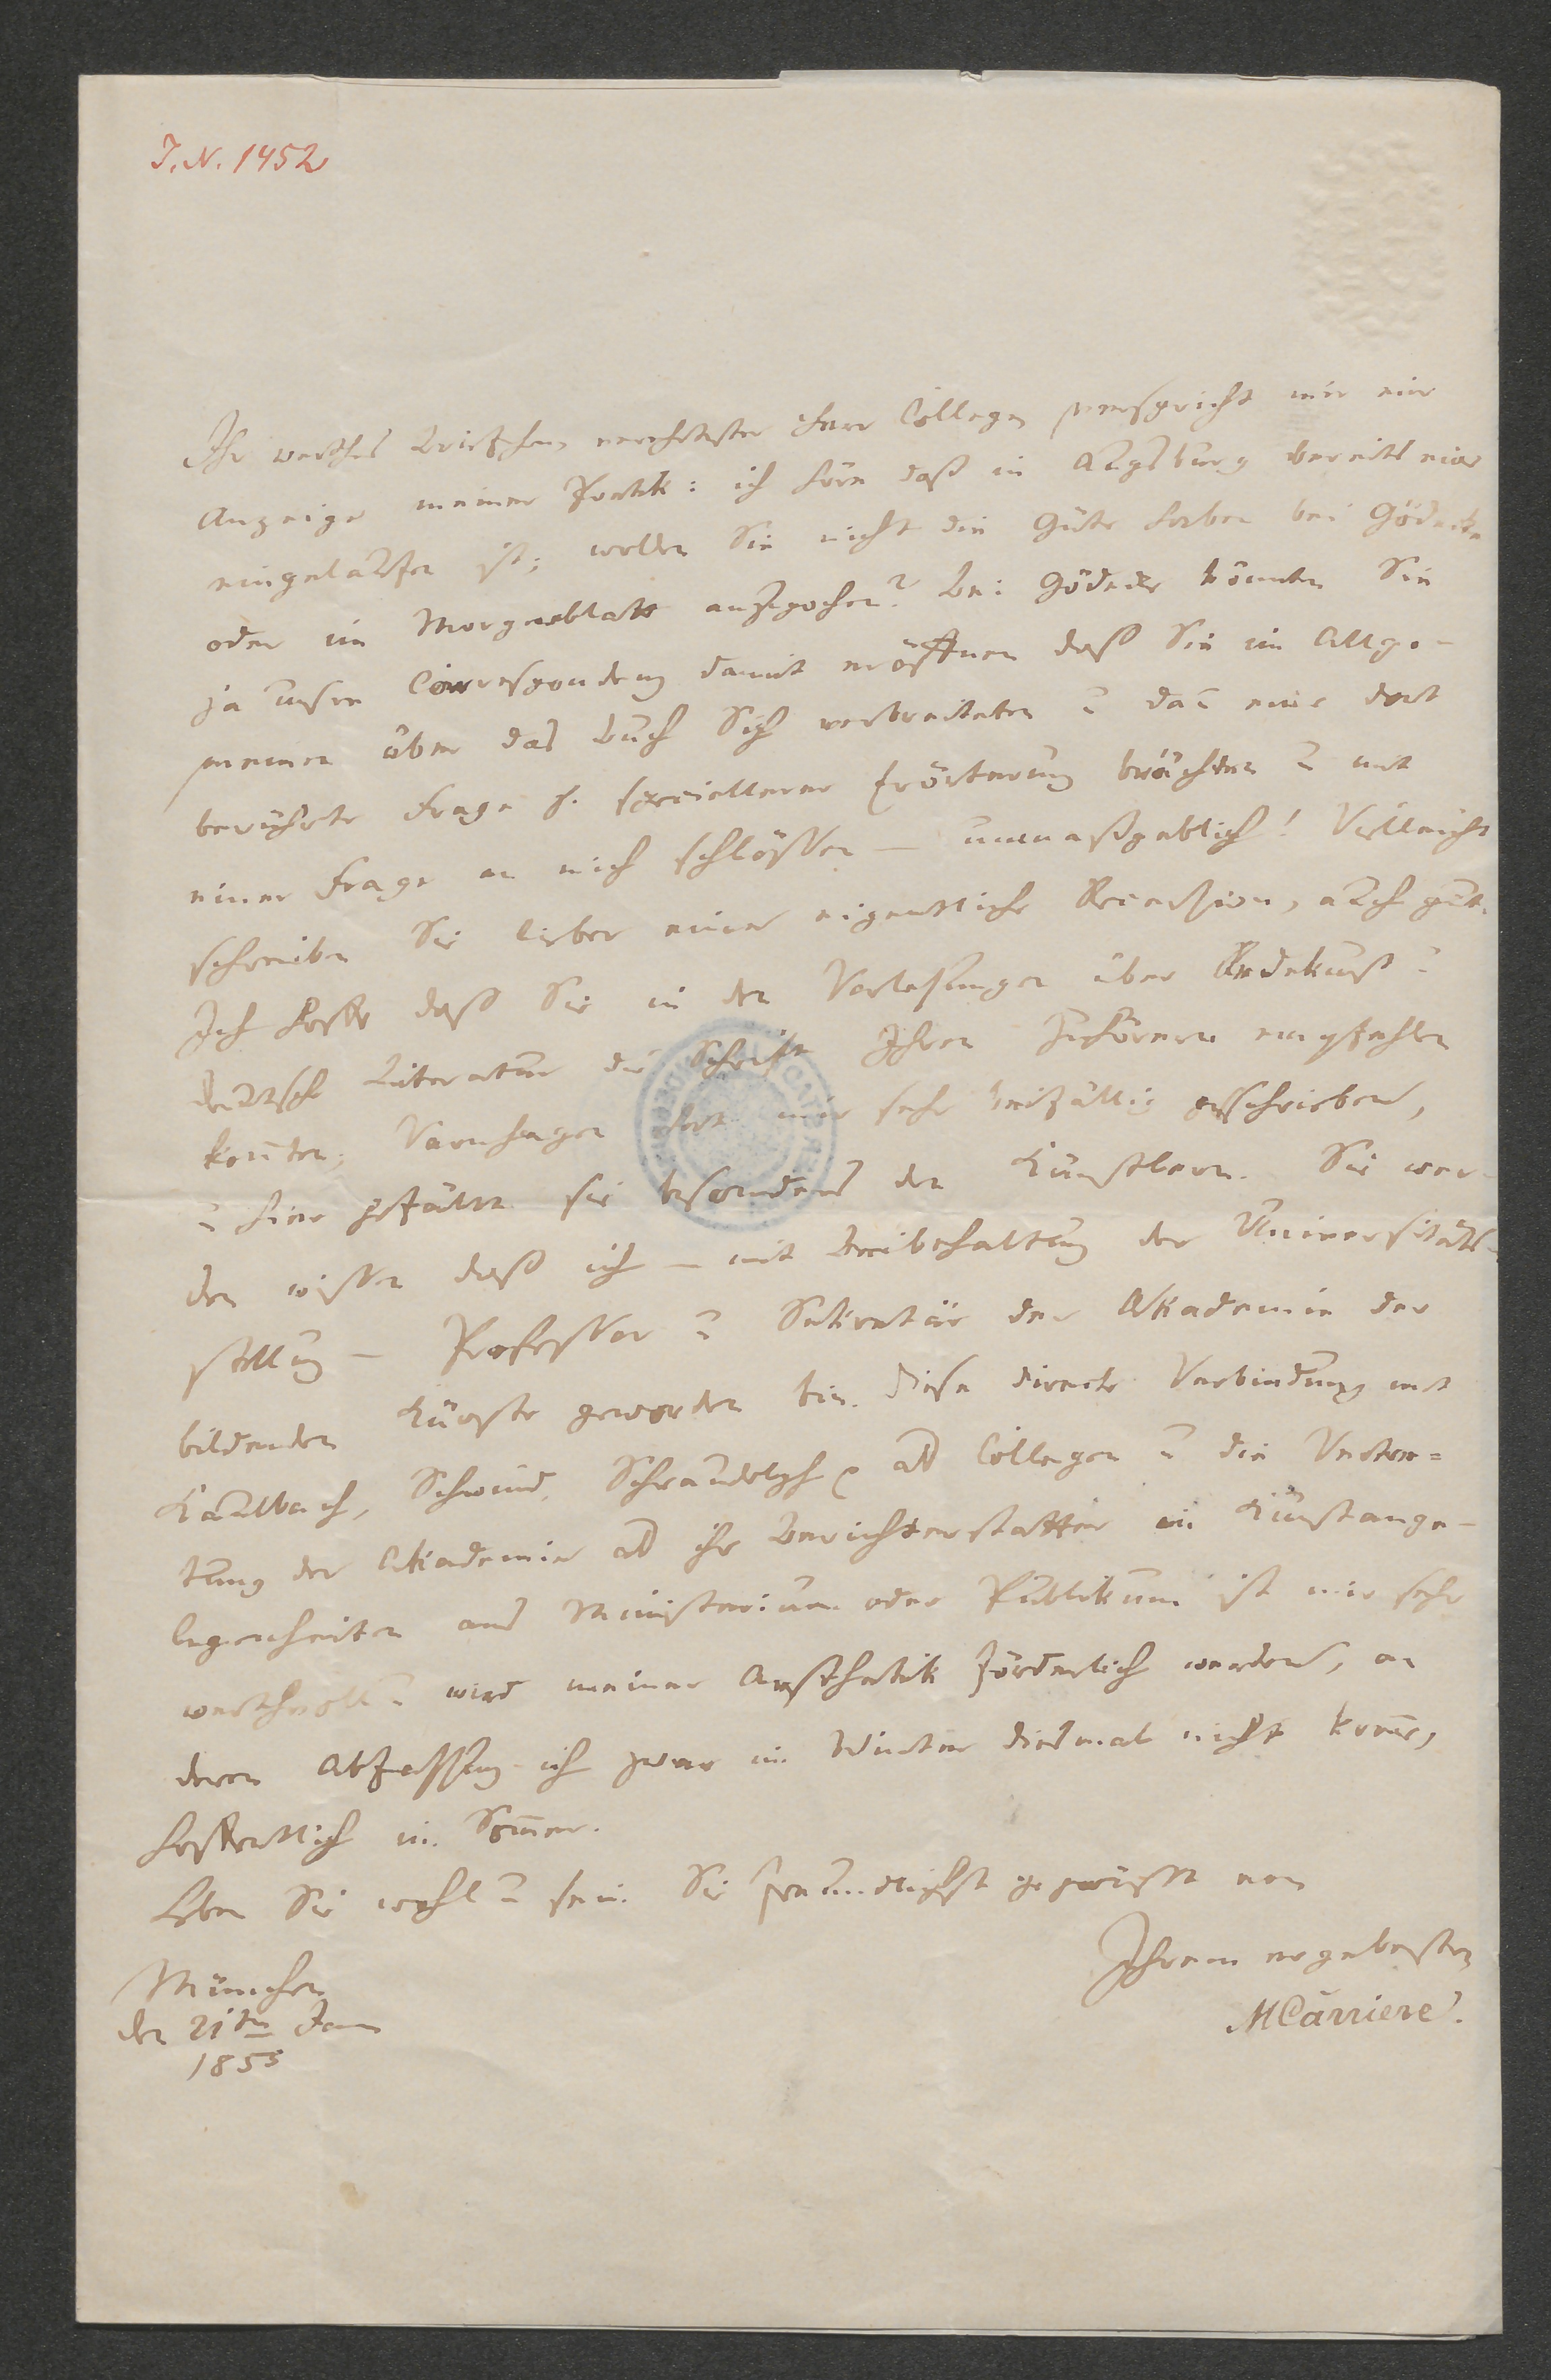 J. N. 1452
Ihr werthes Briefchen, verehrtester Herr College, verspricht mir eine
Anzeige meiner Poetik: ich höre daß in Augsburg bereits eine
eingelaufen ist; wollen Sie nicht die Güte haben bei Gödeke
oder im Morgenblatt anzupochen? Bei Gödeke könnten Sie
ja unsre Correspondenz damit eröffnen daß Sie im Allge-
meinen über das Buch Sich verbreiteten u daū eine dort
berührte Frage z. speciellerer Erörterung brächten u mit
einer Frage an mich schlössen – unmaßgeblich! Vielleicht
schreiben Sie lieber eine eigentliche Recension, auch gut.
Ich hoffe daß Sie in den Vorlesungen über Redekunst u
deutsche Literatur die Schrift Ihren Zuhörern empfehlen
koūten; Varnhagen hat mir sehr beifällig geschrieben,
u hier gefällt sie besonders den Künstlern. Sie wer-
den wissen daß ich – mit Beibehaltung der Universitäts-
stellung – Professor u Sekretär der Akademie der
bildenden Künste geworden bin. Diese directe Verbindung mit
Kaulbach, Schwind, Schraudolph als Collegen u die Vertre=
tung der Akademie als ihr Berichterstatter in Kunstange-
legenheiten ans Ministerium oder Publikum ist mir sehr
werthvoll u wird meiner Aesthetik förderlich werden, an
deren Abfassung ich zwar im Winter diesmal nicht koēe,
hoffentlich im Som̄er.
Leben Sie wohl u sein Sie freundlichst gegrüßt von
Ihrem ergebensten
MCarriere.
München
den 21ten Jan
1855